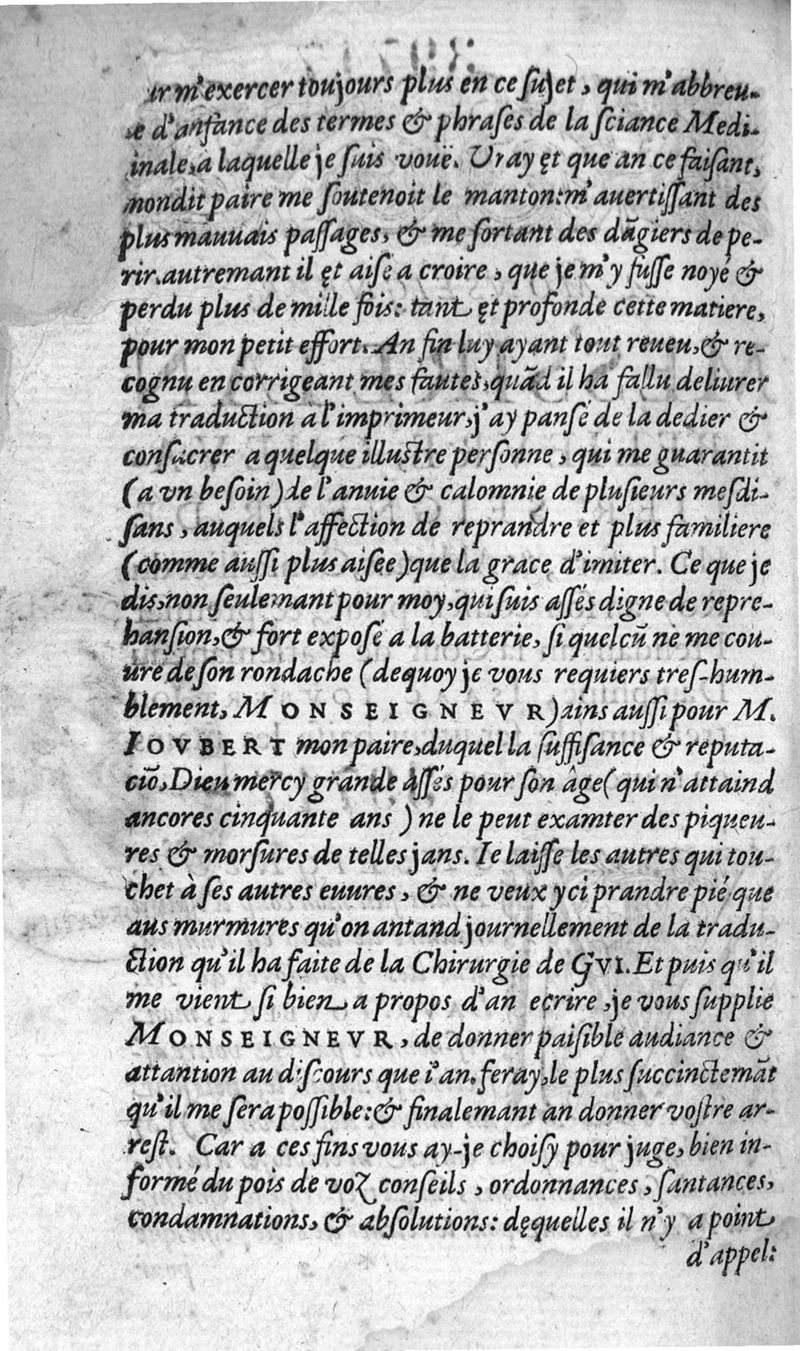 ur m'exercer toujours plus en ce ſujet, qui m'abbreu-
e d'anfance des termes & phraſes de la ſciance Medi-
inale, a laquelle je ſuis voué. Vray ęt que an ce faiſant,
mondit paire me ſoutenoit le manton: m'auertiſſant des
plus mauuais paſſages, & me ſortant des dãgiers de pe-
rir. autremant il ęt aiſé a croire, que je m'y fuſſe noyé &
perdu plus de mille fois: tant ęt profonde cette matiere,
pour mon petit effort. An fin luy ayant tout reueu, & re-
cognu en corrigeant mes fautes, quãd il ha fallu deliurer
ma traduction à l'imprimeur, j'ay panſé de la dedier &
conſacrer a quelque illuſtre perſonne, qui me guarantit
(a vn beſoin) de l'anuie & calomnie de pluſieurs meſdi-
ſans, auquels l'affection de reprandre et plus familiere
(comme auſſi plus aiſee) que la grace d'imiter. Ce que je
dis, non ſeulemant pour moy, qui ſuis aſſés digne de repre-
hanſion, & fort expoſé a la batterie, ſi quelcũ ne me cou-
ure de ſon rondache (dequoy je vous requiers treſ-hum-
blement, MONSEIGNEVR) ains auſſi pour M.
IOVBERT mon paire, duquel la ſuffiſance & reputa-
ciõ, Dieu mercy grande aſſés pour ſon âge (qui n'attaind
ancores cinquante ans) ne le peut examter des piqueu-
res & morſures de telles jans. Ie laiſſe les autres qui tou-
chet à ſes autres euures, & ne veux yci prandre pié que
aus murmures qu'on antand journellement de la tradu-
ction qu'il ha faite de la Chirurgie de GVI. Et puis qu'il
me vient ſi bien a propos d'an ecrire, je vous ſupplie
MONSEIGNEVR, de donner paiſible audiance &
attantion au diſcours que i'an feray, le plus ſuccinctemãt
qu'il me ſera poſſible: & finalemant an donner voſtre ar-
reſt. Car a ces fins vous ay-je choiſy pour juge, bien in-
formé du pois de voz conſeils, ordonnances, ſantances,
condamnations, & abſolutions: dęquelles il n'y a point
d'appel: